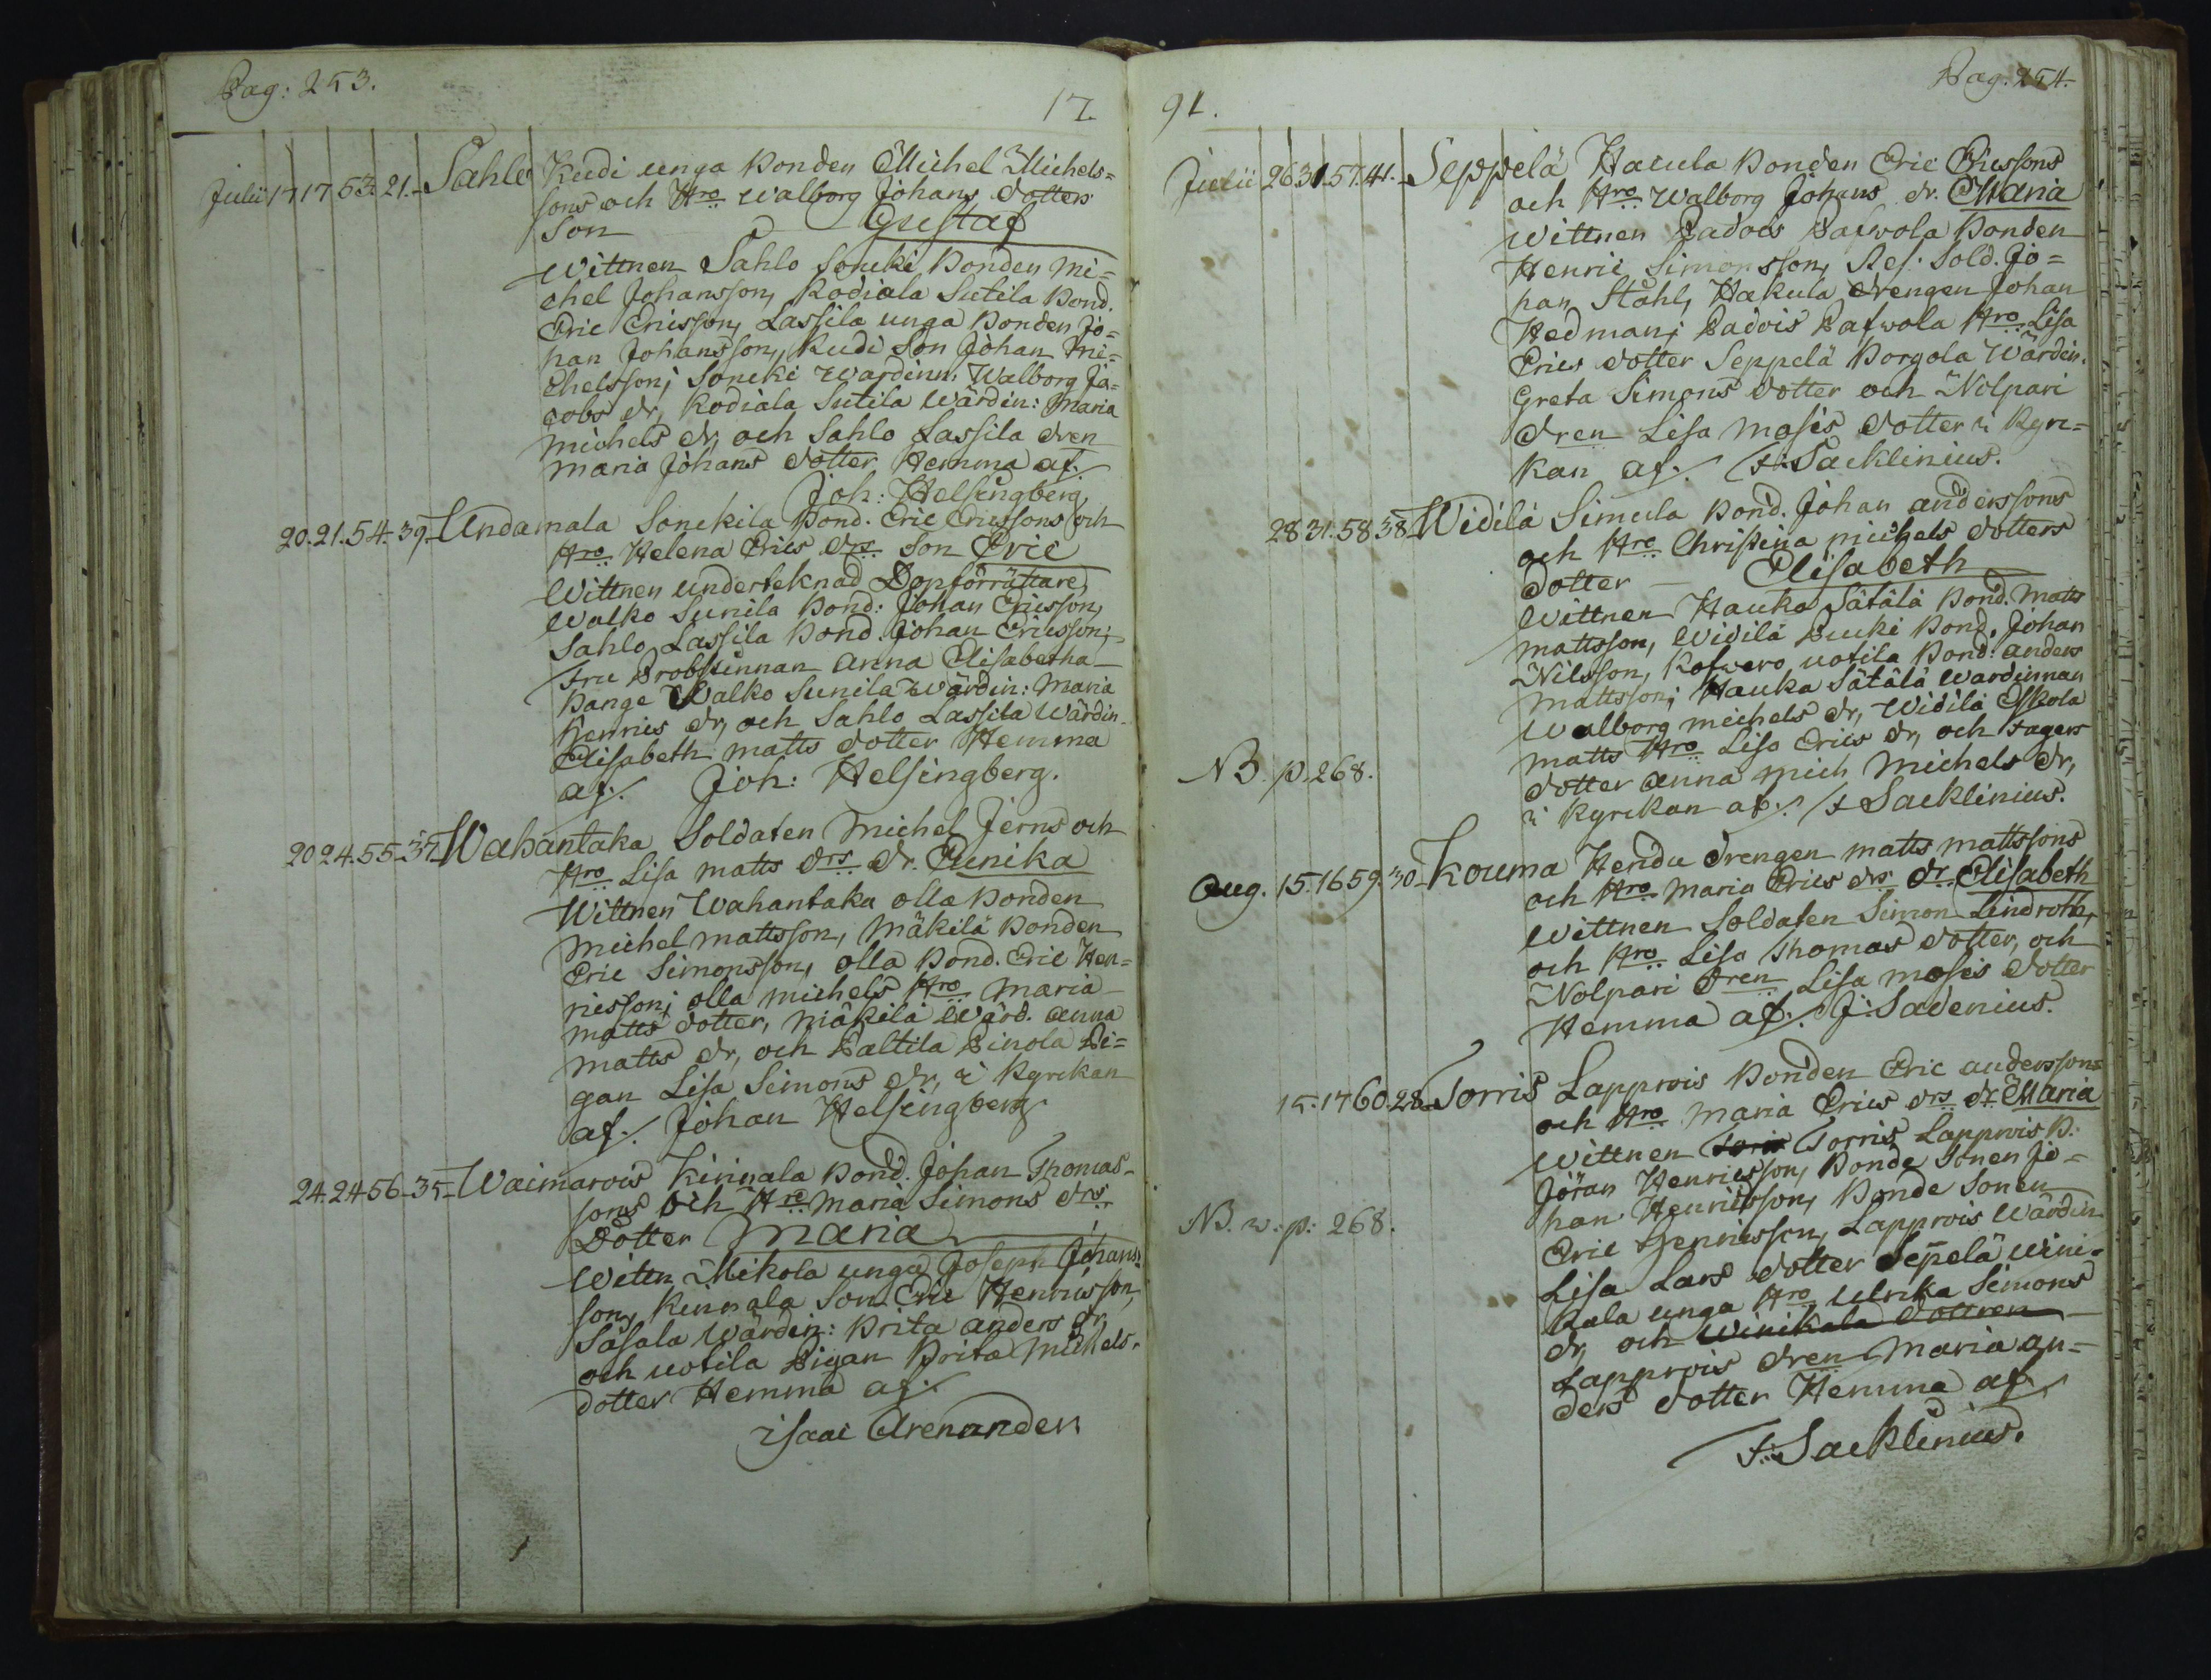 Pag: 253.
17
Julii 17 17 53. 21. Sahlo Kudi unga Bonden Michel Michels=
sons och Hro Walborg Johans dotters
Son Gustaf
Wittnen Sahlo Soucki Bonden Mi=
chel Johansson, Kodiala Sutila Bond.
Eric Ericsson, Lassila unga Bonden Jo=
han Johansson, Kudi Son Johan Mi=
chelsson; Soucki Wardinn: Walborg Ja=
cobs dr, Kodiala Sutila Wärdin: Maria
Michels dr, och Sahlo Lassila dren
Maria Johans dotter Hemma af./.
Joh: Helsingberg.
20. 21. 54. 39. Undamala Sonckila Bond. Eric Ericssons och
Hro Helena Erics drs Son Eric
Wittnen underteknad Dopförrättare,
Walko Sunila Bond: Johan Ericsson,
Sahlo Lassila Bond. Johan Ericsson;
Fru Probstinnan Anna Elisabetha
Bange Walko Sunila Wärdin: Maria
Henrics dr, och Sahlo Lassila Wärdin.
Elisabeth Matts dotter Hemma
af./. Joh: Helsingberg.
20 24. 55. 37. Wahantaka Soldaten Michel Jerns och
Hro Lisa Matts drs dr. Eunika
Wittnen Wahantaka Olla Bonden
Michel Mattsson, Mäkilä Bonden
Eric Simonsson, Olla Bond. Eric Hen=
ricsson; Olla Michels Hro Maria
Matts dotter, Mäkilä Wärd. Anna
Matts dr, och Paltila Pinola Pi=
gan Lisa Simons dr, i Kyrckan
af./. Johan Helsingberg
24 24 56. 35. Waimarois Kinnala Bond. Johan Thomas=
sons och Hro Maria Simons drs
Dotter Maria
Wittn Mikola unga Joseph Johans
son, Kinnala Son Eric Henricsson,
Sasala Wärdin: Brita Anders dr,
och Uotila Pigan Brita Michels
dotter Hemma af./.
Isaac Arenander.
91.
Pag. 254.
Julii 26 31. 57. 41. Seppelä Hacula Bonden Eric Ericssons
och Hro Walborg Johans dr. Maria
Wittnen Padois Pafwola Bonden
Henric Simonsson, Ref. Sold. Jo=
han Ståhl, Hakula drengen Johan
Hedman; Padois Pafwola Hro Lisa
Erics dotter Seppelä Borgola Wärdin.
Greta Simons dotter och Nolpari
dren Lisa Mosis dotter i Kyrc=
kan af./. F: Sacklinius.
28 31. 58 38 Widilä Simula Bond. Johan Anderssons
och Hro Christina Michels dotters
dotter Elisabeth
Wittnen Hauka Sätälä Bond. Matts
Mattsson, Widilä Pucki Bond. Johan
Nilsson, Kofwero, Uotila Bond: Anders
Mattsson; Hauka Sätälä Wardinnan
Walborg Michels dr, Widilä Eskola
Matts Hro Lisa Erics dr, och Fagers
NB. p. 268. dotter Anna Mich Michels dr,
i Kyrckan af./. F Sacklinius.
Aug. 15. 16 59. 30 Kouma Hendu Drengen Matts Mattssons
och Hro Maria Erics drs dr Elisabeth
Wittnen Soldaten Simon Lindroth,
och Hro Lisa Thomas dotter, och
Nolpari dren Lisa Mosis dotter
Hemma af./. J: Sadenius.
15. 17 60. 28 Torris Lapprois Bonden Eric Anderssons
och Hro Maria Erics drs dr Maria
Wittnen Torris Lapprois B.
Jöran Henricsson, Bonde Sonen Jo=
NB. v. p: 268. han Henricsson, Bonde Sonen
Eric Henricsson, Lapprois Wärdin
Lisa Lars dotter Sepelä Wini=
kala unga Hro Ulrika Simons
dr, och Winikala dottren
Lapprois dren Maria An=
ders dotter Hemma af./.
F: Sacklinius.